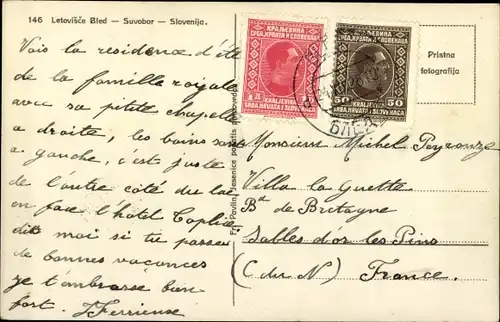 146 Letovišče Bled — Suvobor — Slovenija.
Vois la residence d'été
de la famille royale
avec sa petite chapelle
a droite, les bains sont
a gauche, c'est juste
de l'autre côté du lac
en face l'hôtel Toplice
dit moi si tu passes
de bonnes vacances
je t'embrasse bien
fort.
Fr. Pavlin, Jesenice
КРАЉЕВИНА
СРБА, ХРВАТА И СЛОВЕНАЦА
1 Д
KRALJEVINA
SRBA, HRVATA I SLOVENACA
КРАЉЕВИНА
СРБА, ХРВАТА И СЛОВЕНАЦА
50 50
KRALJEVINA
SRBA, HRVATA I SLOVENACA
БЛЕД
Pristna
fotografija
Monsieur Michel
Villa la Guette
Bd de Bretagne
Sables d'or les Pins
(C. du N) France.